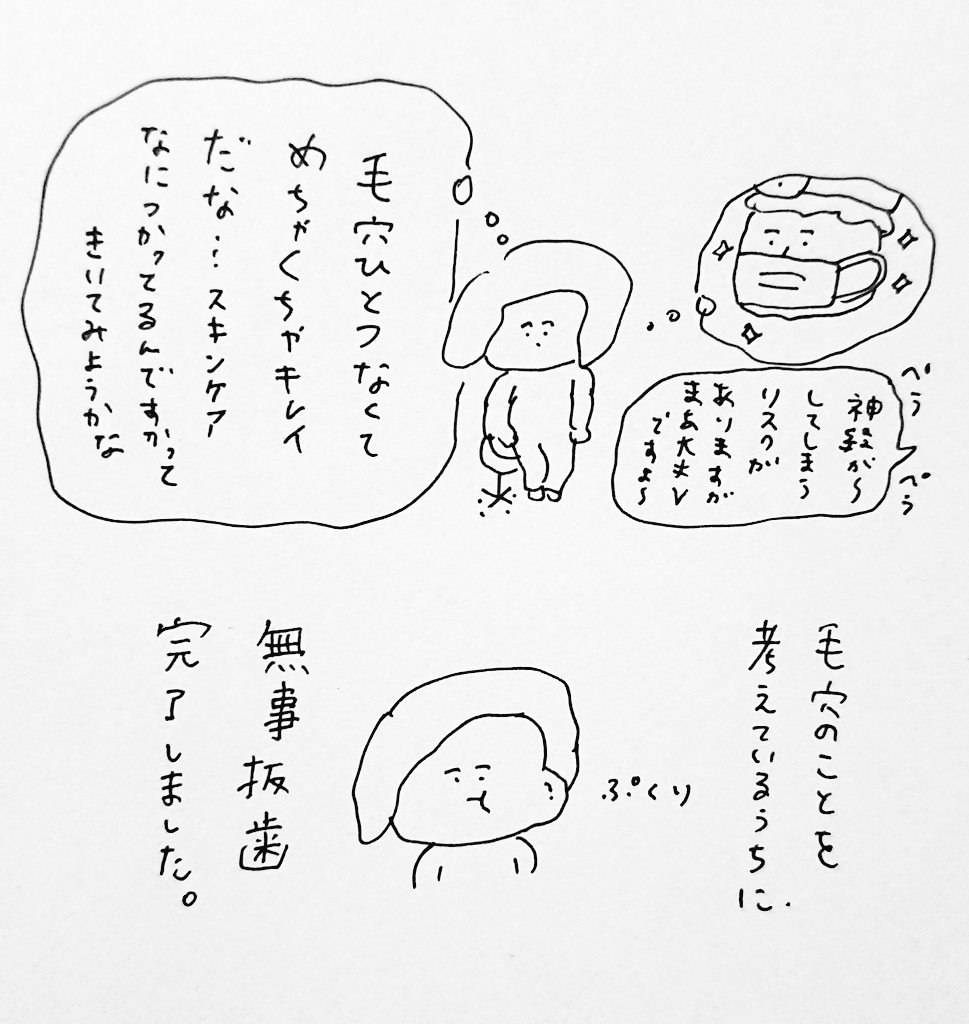 ぺら
ぺら
神経が〜
してしまう
リスクが
ありますが
まあ大丈夫
ですよ〜
毛穴ひとつなくて
めちゃくちゃキレイ
だな…スキンケア
なにつかってるんですかって
きいてみようかな
毛穴のことを
考えているうちに.
ぷくり
無事抜歯
完了しました。